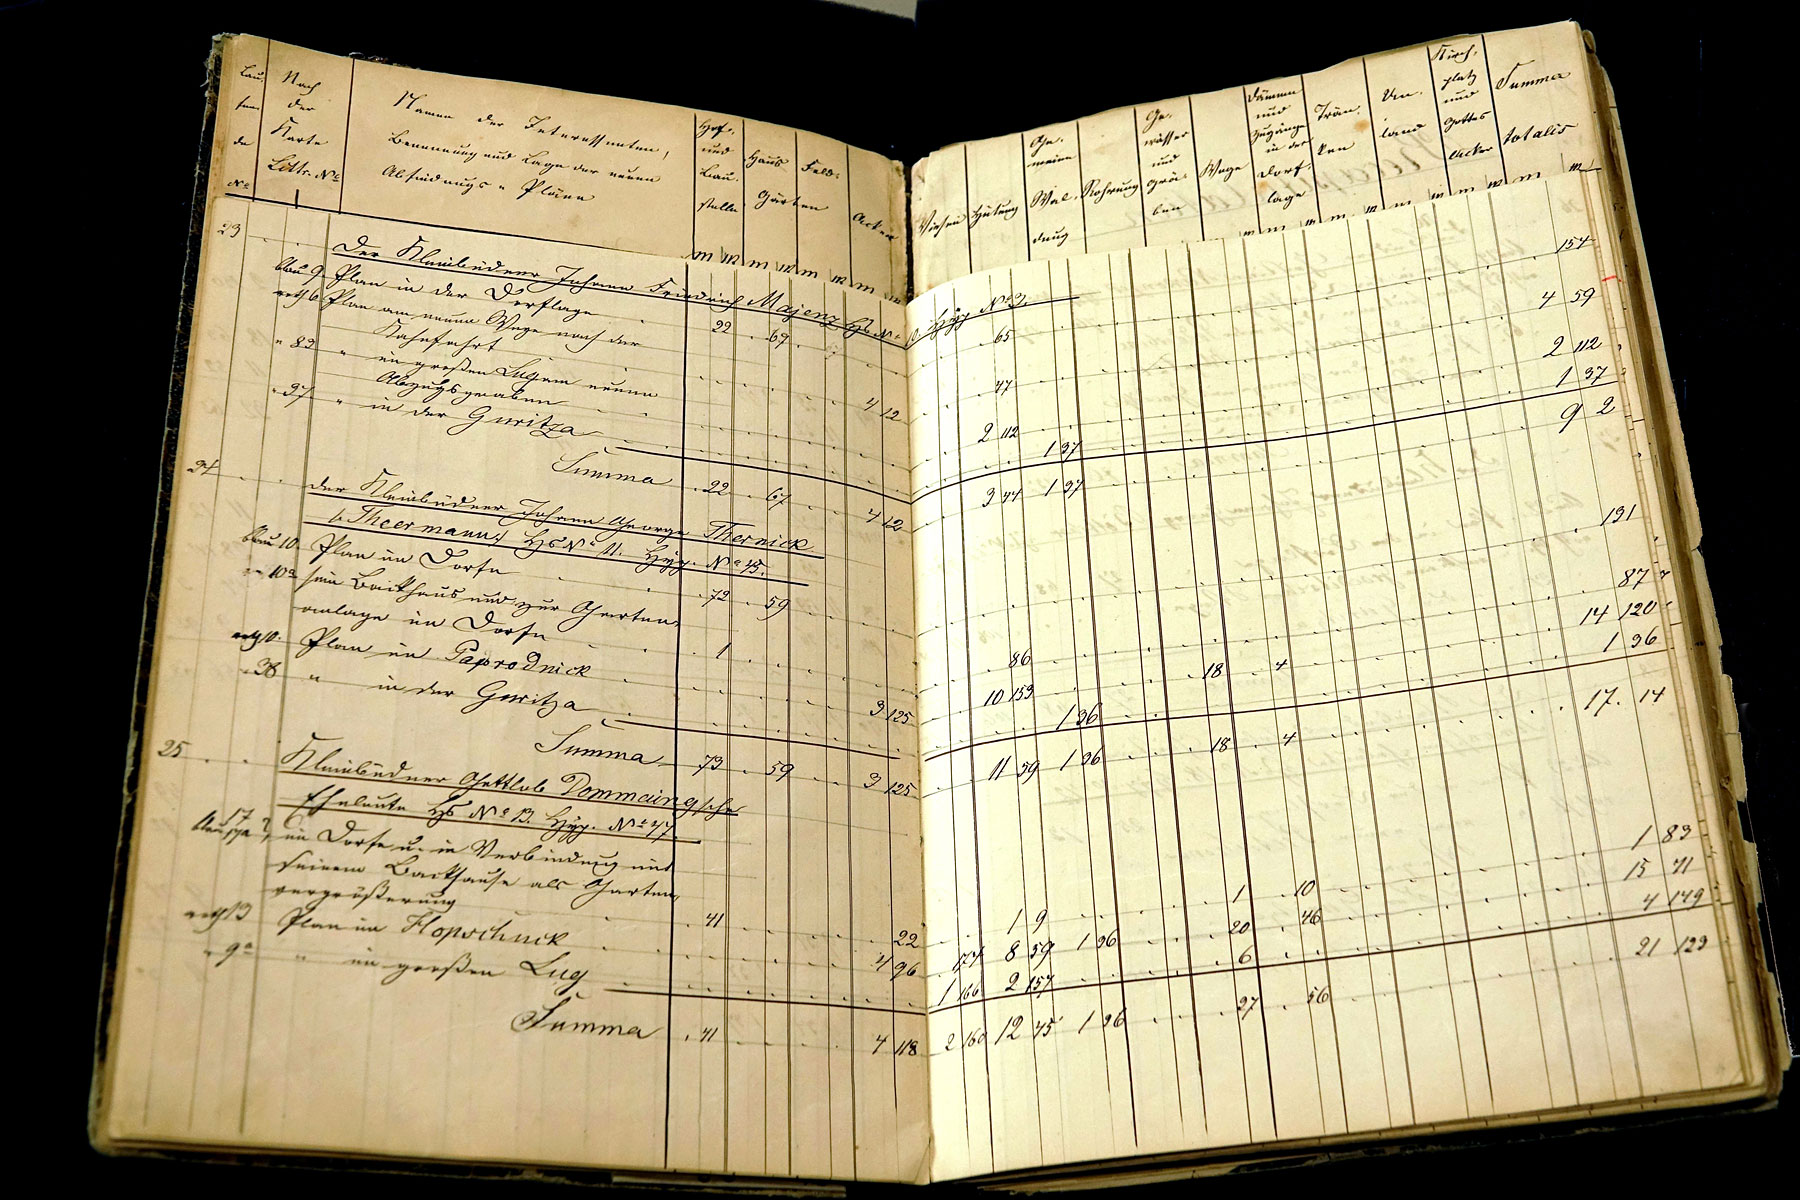 Lau-
fen-
de
No
Nach
der
Karte
Littr. No
Namen der Interessenten,
Benennung und Lage der neuen
Abfindungs = Pläne
Hof-
und
Bau-
stelle
Haus
Gärten
Feld-
Acker
Wiesen
Hütung
Ge-
meine
Wal-
dung
Rohrung
Ge-
wässer
und
Grä-
ben
Wege
Dämme
und
Zugänge
in der
Dorf-
lage
Trän-
ken
Un-
land
Kirch-
platz
und
Gottes
Acker
Summa
totalis
23 Der Kleinbüdner Johann Friedrich Majenz Hs No 10 Hyp No 3.
blau 9. Plan in der Dorflage 22 67 65 154
roth 6 Plan am neuen Wege nach der
Kahnfahrt 4 12 47 4 59
" 83 " im großen Lug am neuen
Abzugsgraben 2 112 2 112
" 37 " in der Guritza 1 37 1 37
Summa 22 67 4 12 3 44 1 37 9 2
24 Der Kleinbüdner Johann George Thernick
(Theermann) Hs No 11. Hyp. No 45.
blau 10. Plan im Dorfe 72 59 131
" 10a sein Backhaus und zur Garten-
anlage im Dorfe 1 86 87
roth 10. Plan im Paprodnick 3 125 10 153 18 4 14 120
" 38 " in der Guritza 1 36 1 36
Summa 73 59 3 125 11 59 1 36 18 4 17 14
25 Kleinbüdner Gottlob Dommaingsche
Eheleute Hs No 13. Hyp. No 47
blau 17 im Dorfe u. in Verbindung mit
seinem Backhause als Garten-
vergrößerung 41 22 1 9 1 10 1 83
roth 13 Plan im Hopschuick 4 96 174 8 59 1 36 20 46 15 71
" 9a " im großen Lug 1 166 2 157 6 4 149
Summa 41 4 118 2 160 12 45 1 36 27 56 21 123